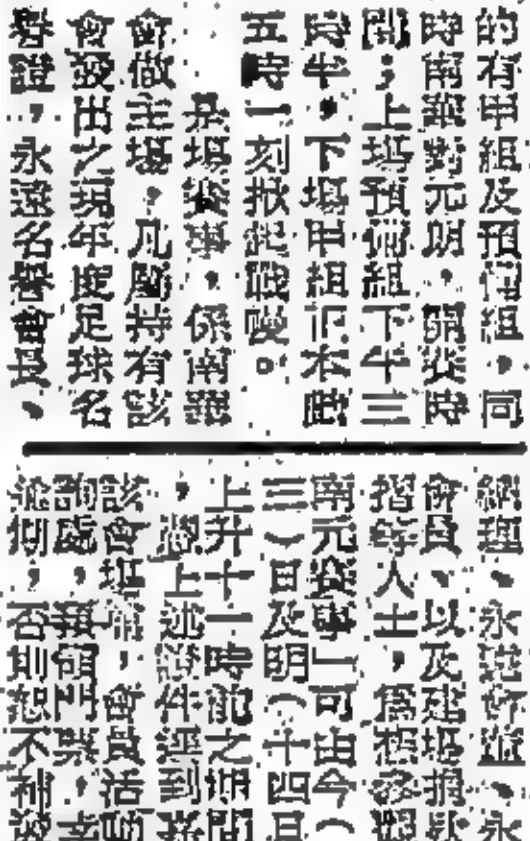 的有甲組及預備組,同
時南華對元朗,開賽時
間;上塲預備組下午三
時半,下塲甲組正本
五時一刻掀起戰幔。
是塲賽事,係南華
會做主塲,凡屬持有該
會發出之現年度足球名
譽證,永遠名譽會長、
總理、永遠
會員、以及建塲捐
人士,爲
南元賽事」可由今(十
三)日及明(十四日
上升十一時前之期間
,上述證件逕到
該會,會員活動
詢處,預領門票,幸
,否則恕不補發